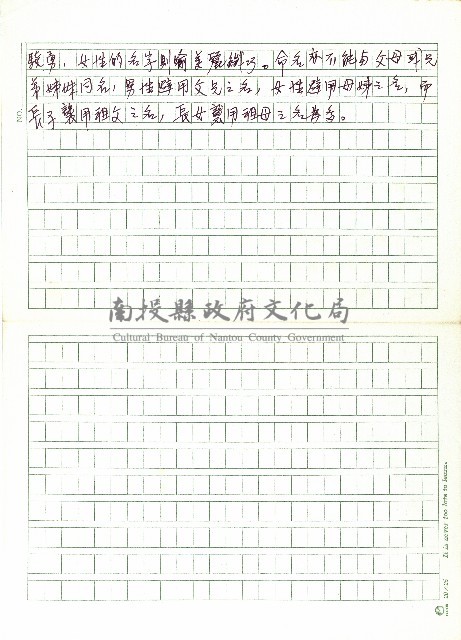 驍勇，女性的名字則喻美麗纖巧。命名亦不能与父母或兄
弟姊妹同名，男性避用父兄之名，女性避用母姊之名，而
長子襲用祖父之名，長女襲用祖母之名甚多。
南投縣政府文化局
Cultural Bureau of Nantou County Government
NO.
It is never too late to learn.
20 / 25